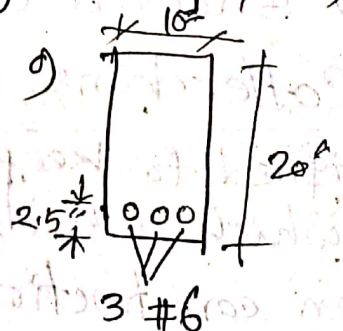 10"
9)
20"
2.5"
3 #6